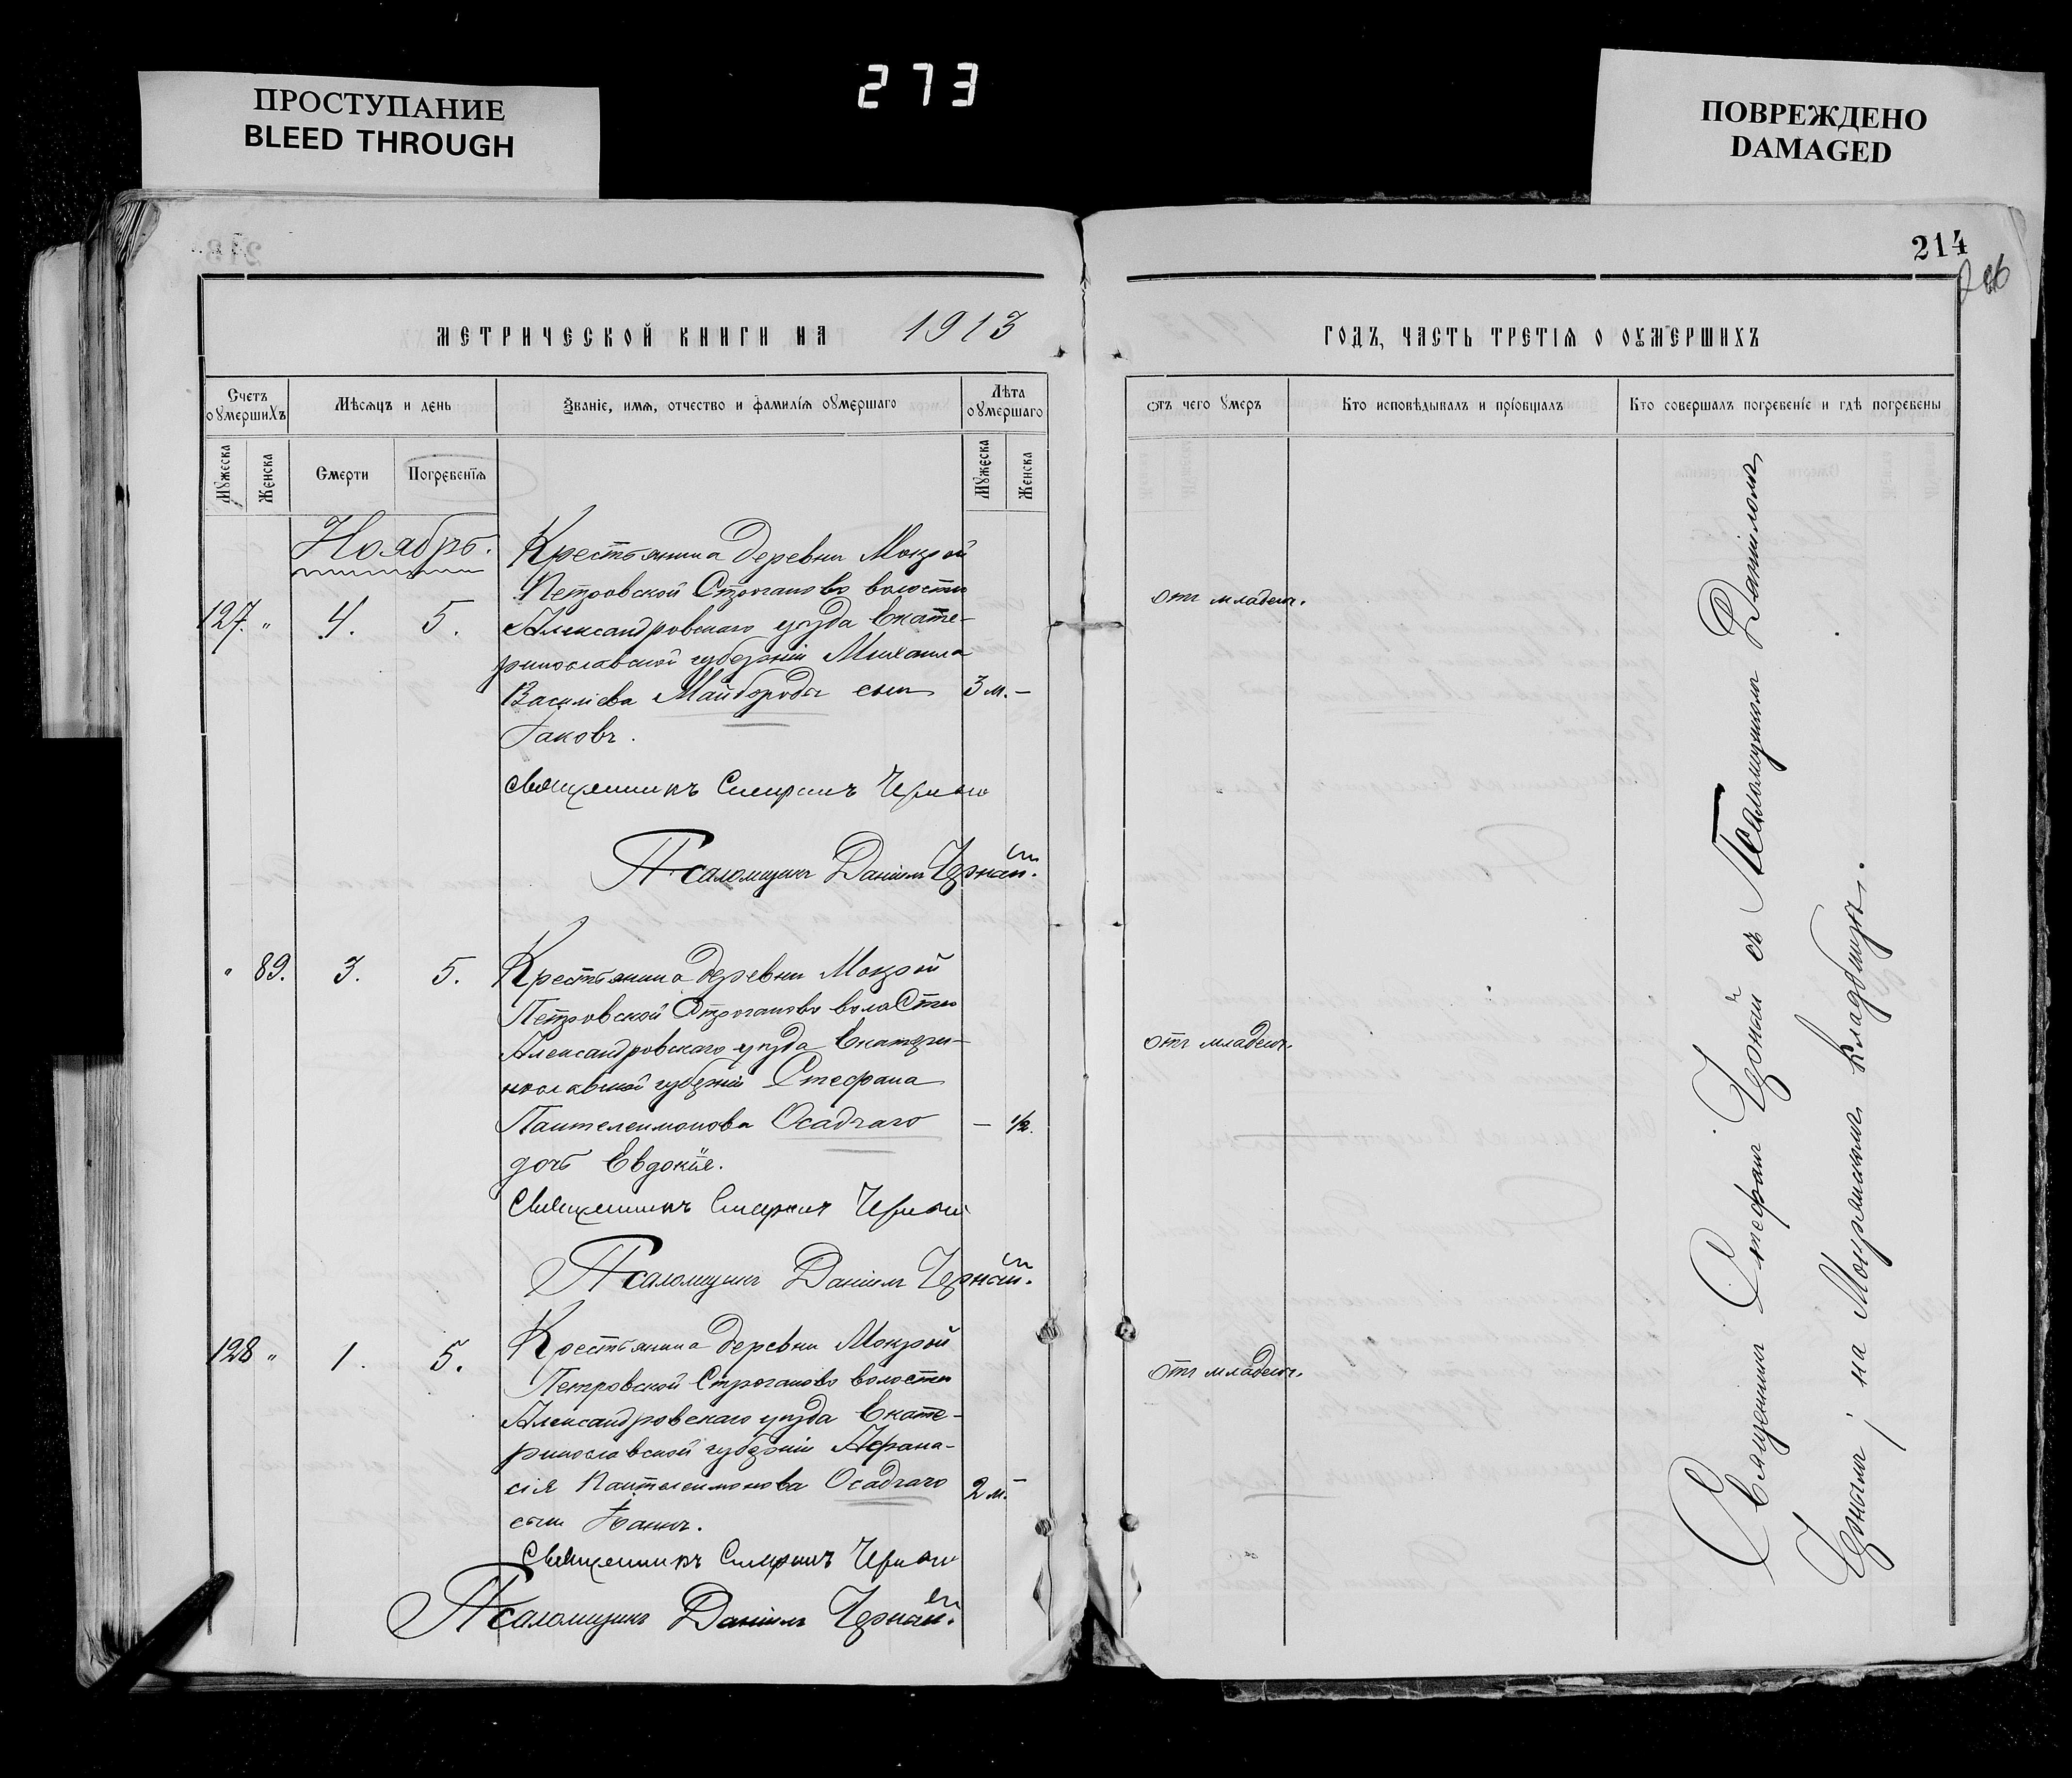 ПРОСТУПАНИЕ
BLEED THROUGH
273
ПОВРЕЖДЕНО
DAMAGED
214
МЕТРИЧЕСКОЙ КНИГИ НА 1913
Счетъ оумершихъ
Мѣсяцъ и день
Званіе, имя, отчество и фамилія оумершаго
Лѣта оумершаго
Мужеска
Женска
Смерти
Погребенія
Мужеска
Женска
Ноябрь.
Крестьянина деревни Мокрой
Петровской Строганово волости
127. " 4. 5. Александровскаго уѣзда Екате-
ринославской губерніи Михаила
Василіева Майбороды сынъ 3 м. –
Іаковъ.
Священникъ Стефанъ Черный
Псаломщикъ Даніилъ Чернай.
" 89. 3. 5. Крестьянина деревни Мокрой
Петровской Строганово волости
Александровскаго уѣзда Екатери-
нославской губерніи Стефана
Пантелеимонова Осадчаго – 1/2.
дочь Евдокія.
Священникъ Стефанъ Черный
Псаломщикъ Даніилъ Чернай.
128 " 1. 5. Крестьянина деревни Мокрой
Петровской Строганово волости
Александровскаго уѣзда Екате-
ринославской губерніи Афана-
сія Пантелеимонова Осадчаго 2 м. –
сынъ
Священникъ Стефанъ Черный
Псаломщикъ Даніилъ Чернай.
ГОДЪ, ЧАСТЬ ТРЕТІЯ О ОУМЕРШИХЪ
отъ чего умеръ
Кто исповѣдывалъ и пріобщалъ
Кто совершалъ погребеніе и гдѣ погребены
отъ младен.
отъ младен.
отъ младен.
Священникъ Стефанъ Черный съ Псаломщикомъ Даніиломъ
Чернымъ; на Мокрянскомъ кладбищѣ.